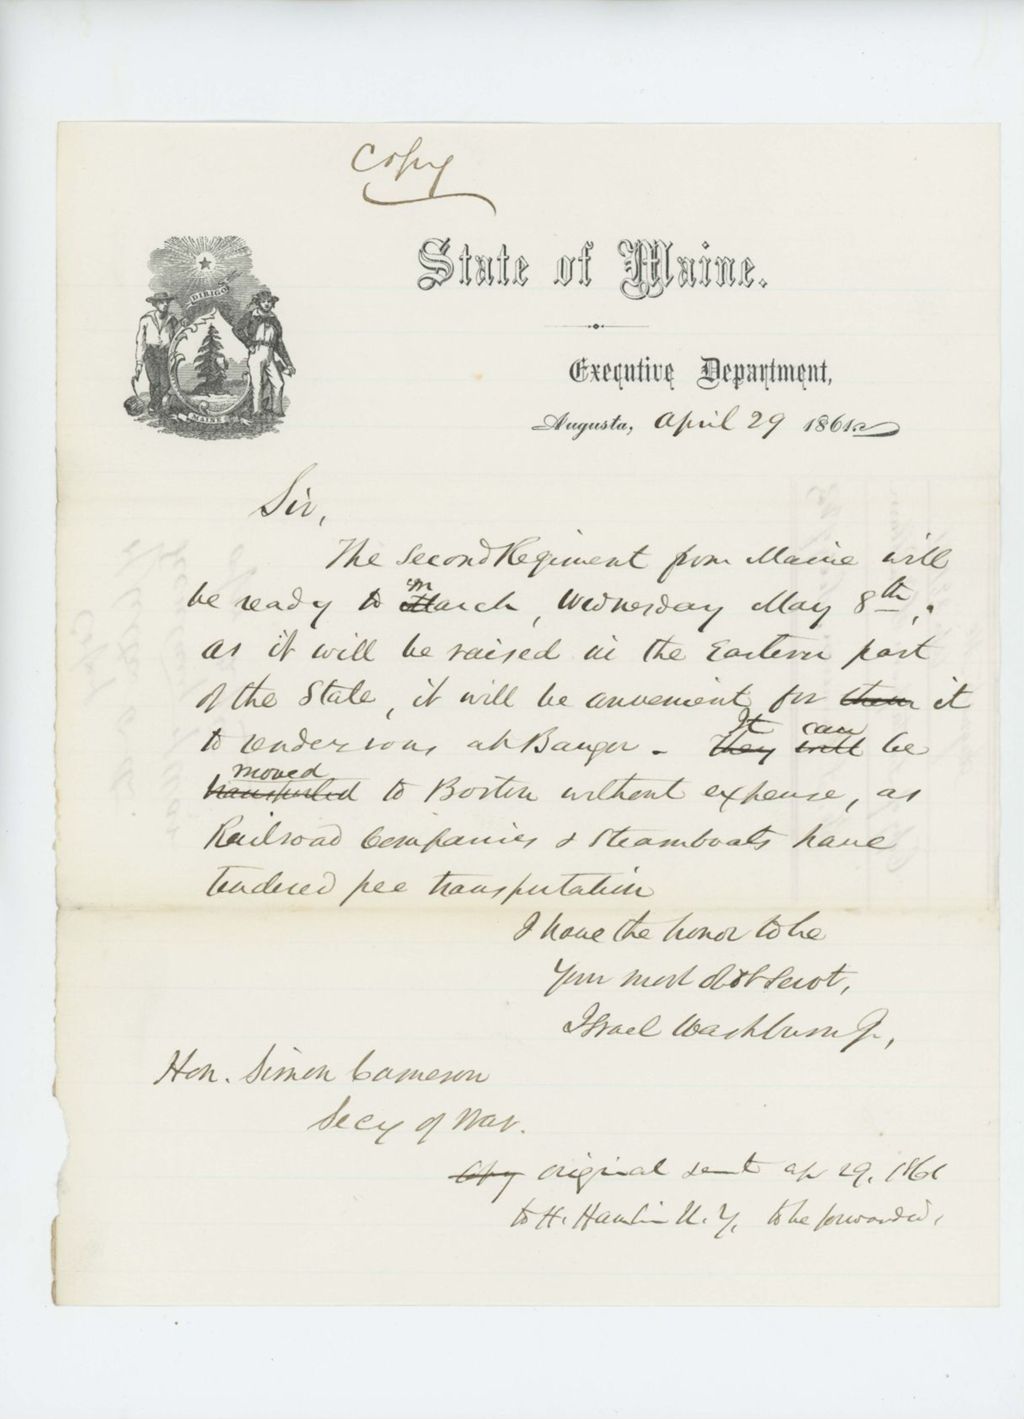 Copy
State of Maine.
DIRIGO
MAINE
Executive Department,
Augusta, April 29 1861.
Sir,
The Second Regiment from Maine will
be ready to march, Wednesday May 8th,.
as it will be raised in the Eastern part
of the State, it will be convenient for them it
to rendezvous at Bangor - They will It can be
transported moved to Boston without expense, as
Railroad Companies & Steamboats have
tendered free transportation
I have the honor to be
Your most obt Servt,
Israel Washburn Jr,
Hon. Simon Cameron
Secy of War.
Copy original sent ap 29, 1861
to H. Hamlin N.Y, to be forwarded,